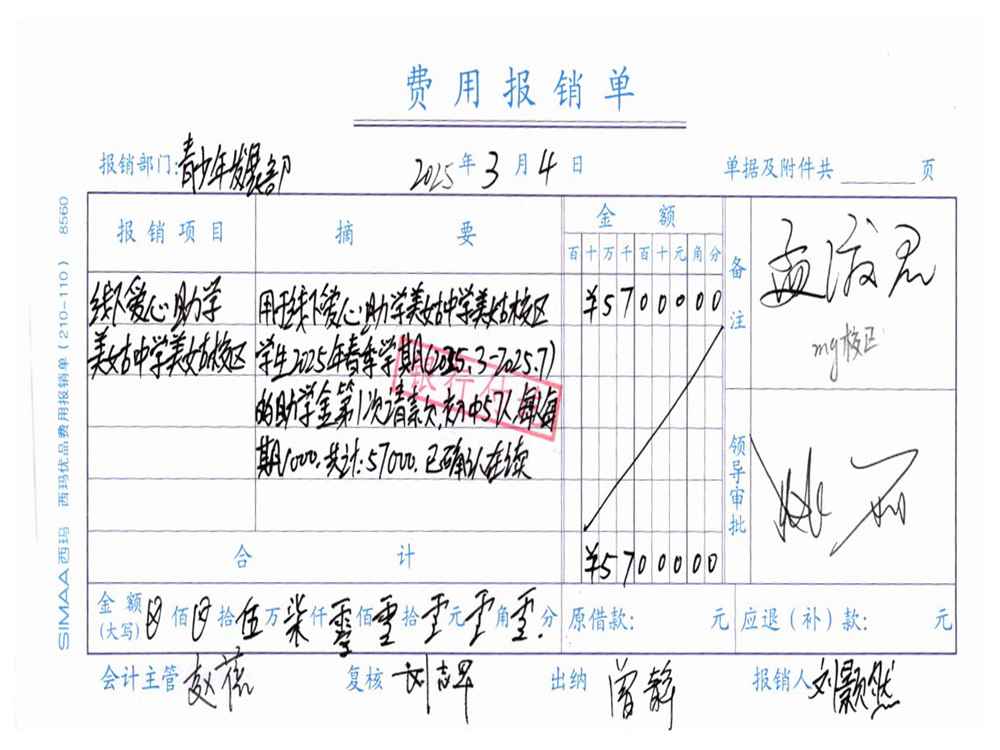 费用报销单
报销部门:青少年发展部 2025年3月4日 单据及附件共 页
报销项目 摘要 金额 备注
百十万千百十元角分
线下爱心助学 用于线下爱心助学美姑中学美姑校区 ¥5700000
美姑中学美姑校区 学生2025年春季学期(2025.3-2025.7)
的助学金第1次请款, 初中57人,每
期1000.共计:57000.已确认在读
mg校区
领导审批
合计 ¥5700000
金额(大写) 佰 拾伍万柒仟零佰零拾零元零角零分. 原借款: 元 应退(补)款: 元
会计主管 赵 复核 刘 出纳 曾 报销人 刘颢然
SIMAA西玛 西玛优品费用报销单(210-110) 8560
银行